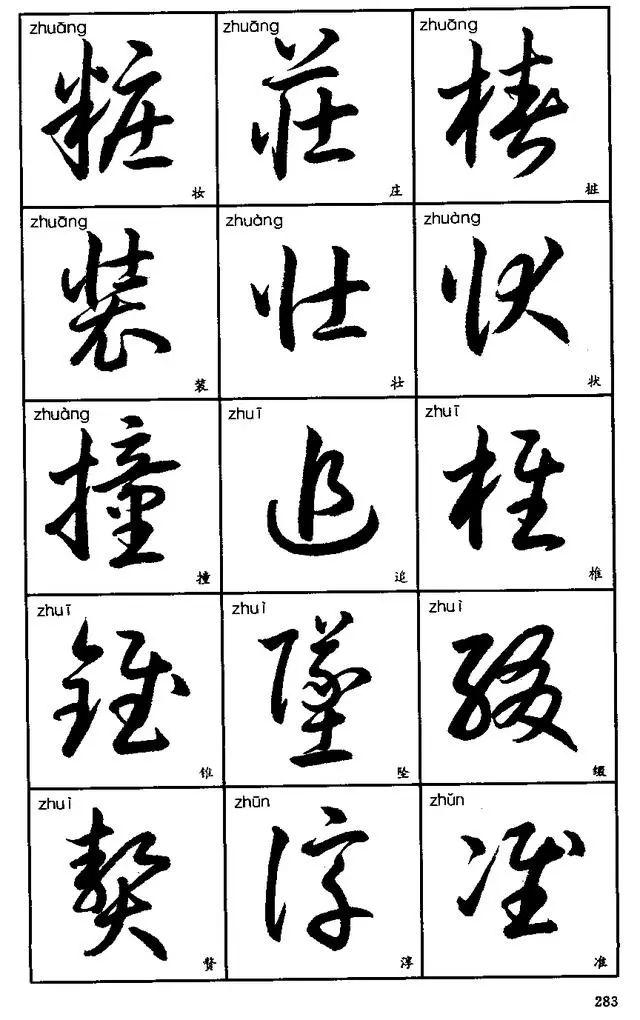 zhuāng zhuāng zhuāng
粧 莊 樁
妆 庄 桩
zhuāng zhuàng zhuàng
裝 壯 狀
装 壮 状
zhuàng zhuī zhuī
撞 追 椎
撞 追 椎
zhuī zhuì zhuì
錐 墜 綴
锥 坠 缀
zhuì zhūn zhǔn
贅 淳 准
赘 淳 准
283